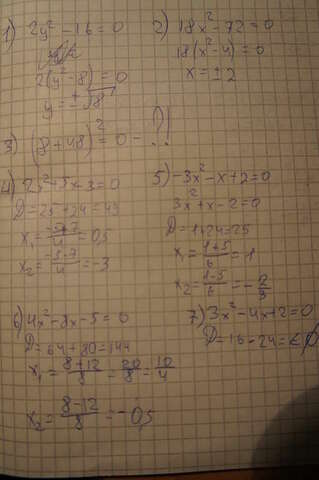 1) 2y² - 16 = 0
2(y² - 8) = 0
y = ±√8
2) 18x² - 72 = 0
18(x² - 4) = 0
x = ±2
3) (8 + 48)² = 0 - ?!
4) 2x² + 5x - 3 = 0
D = 25 + 24 = 49
x₁ = (-5+7)/4 = 0,5
x₂ = (-5-7)/4 = -3
5) -3x² - x + 2 = 0
3x² + x - 2 = 0
D = 1 + 24 = 25
x₁ = (1+5)/6 = 1
x₂ = (1-5)/6 = -2/3
6) 4x² - 8x - 5 = 0
D = 64 + 80 = 144
x₁ = (8+12)/8 = 20/8 = 10/4
x₂ = (8-12)/8 = -0,5
7) 3x² - 4x + 2 = 0
D = 16 - 24 = ∈ ∅